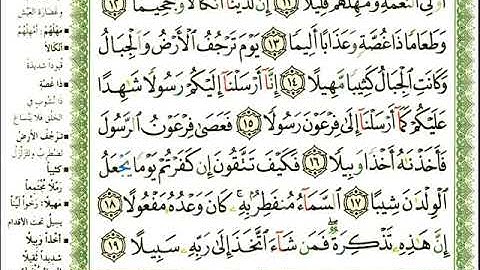 أُوْلِى ٱلنَّعْمَةِ وَمَهِّلْهُمْ قَلِيلًا ١١ إِنَّ لَدَيْنَآ أَنكَالًا وَجَحِيمًا ١٢
وَطَعَامًا ذَا غُصَّةٍ وَعَذَابًا أَلِيمًا ١٣ يَوْمَ تَرْجُفُ ٱلْأَرْضُ وَٱلْجِبَالُ
وَكَانَتِ ٱلْجِبَالُ كَثِيبًا مَّهِيلًا ١٤ إِنَّآ أَرْسَلْنَآ إِلَيْكُمْ رَسُولًا شَٰهِدًا
عَلَيْكُمْ كَمَآ أَرْسَلْنَآ إِلَىٰ فِرْعَوْنَ رَسُولًا ١٥ فَعَصَىٰ فِرْعَوْنُ ٱلرَّسُولَ
فَأَخَذْنَٰهُ أَخْذًا وَبِيلًا ١٦ فَكَيْفَ تَتَّقُونَ إِن كَفَرْتُمْ يَوْمًا يَجْعَلُ
ٱلْوِلْدَٰنَ شِيبًا ١٧ ٱلسَّمَآءُ مُنفَطِرٌۢ بِهِۦ ۚ كَانَ وَعْدُهُۥ مَفْعُولًا ١٨
إِنَّ هَٰذِهِۦ تَذْكِرَةٌ ۖ فَمَن شَآءَ ٱتَّخَذَ إِلَىٰ رَبِّهِۦ سَبِيلًا ١٩
وغضارة العيش
مَهِّلْهُمْ: أمهلهم
أَنكَالًا
قيودا شديدة
ذَا غُصَّةٍ
ذا نشوب في
الحلق فلا يساغ
تَرْجُفُ ٱلْأَرْضُ
تضطرب وتتزلزل
كَثِيبًا
رملا مجتمعا
مَهِيلًا: رخوا لينا
يسيل تحت الأقدام
أَخْذًا وَبِيلًا
شديدا ثقيلا